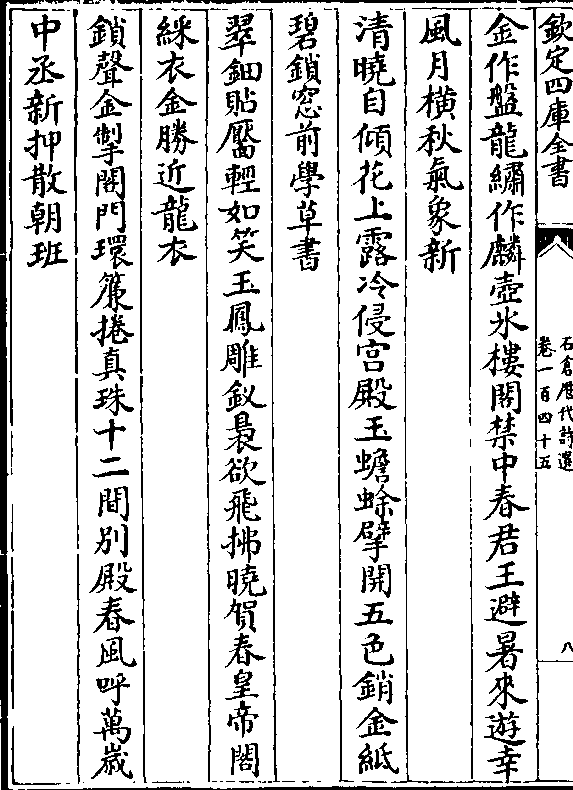 欽定四庫全書
石倉歴代詩選
卷一百四十五
八
金作盤龍繡作麟壺氷樓閣禁中春君王避暑來遊幸
風月橫秋氣象新
清曉自傾花上露冷侵宫殿玉蟾蜍擘開五色銷金紙
碧鎖窓前學草書
翠鈿貼靨輕如笑玉鳳雕釵裊欲飛拂曉賀春皇帝閤
綵衣金勝近龍衣
鎖聲金掣閤門環簾捲真珠十二間别殿春風呼萬歲
中丞新押散朝班